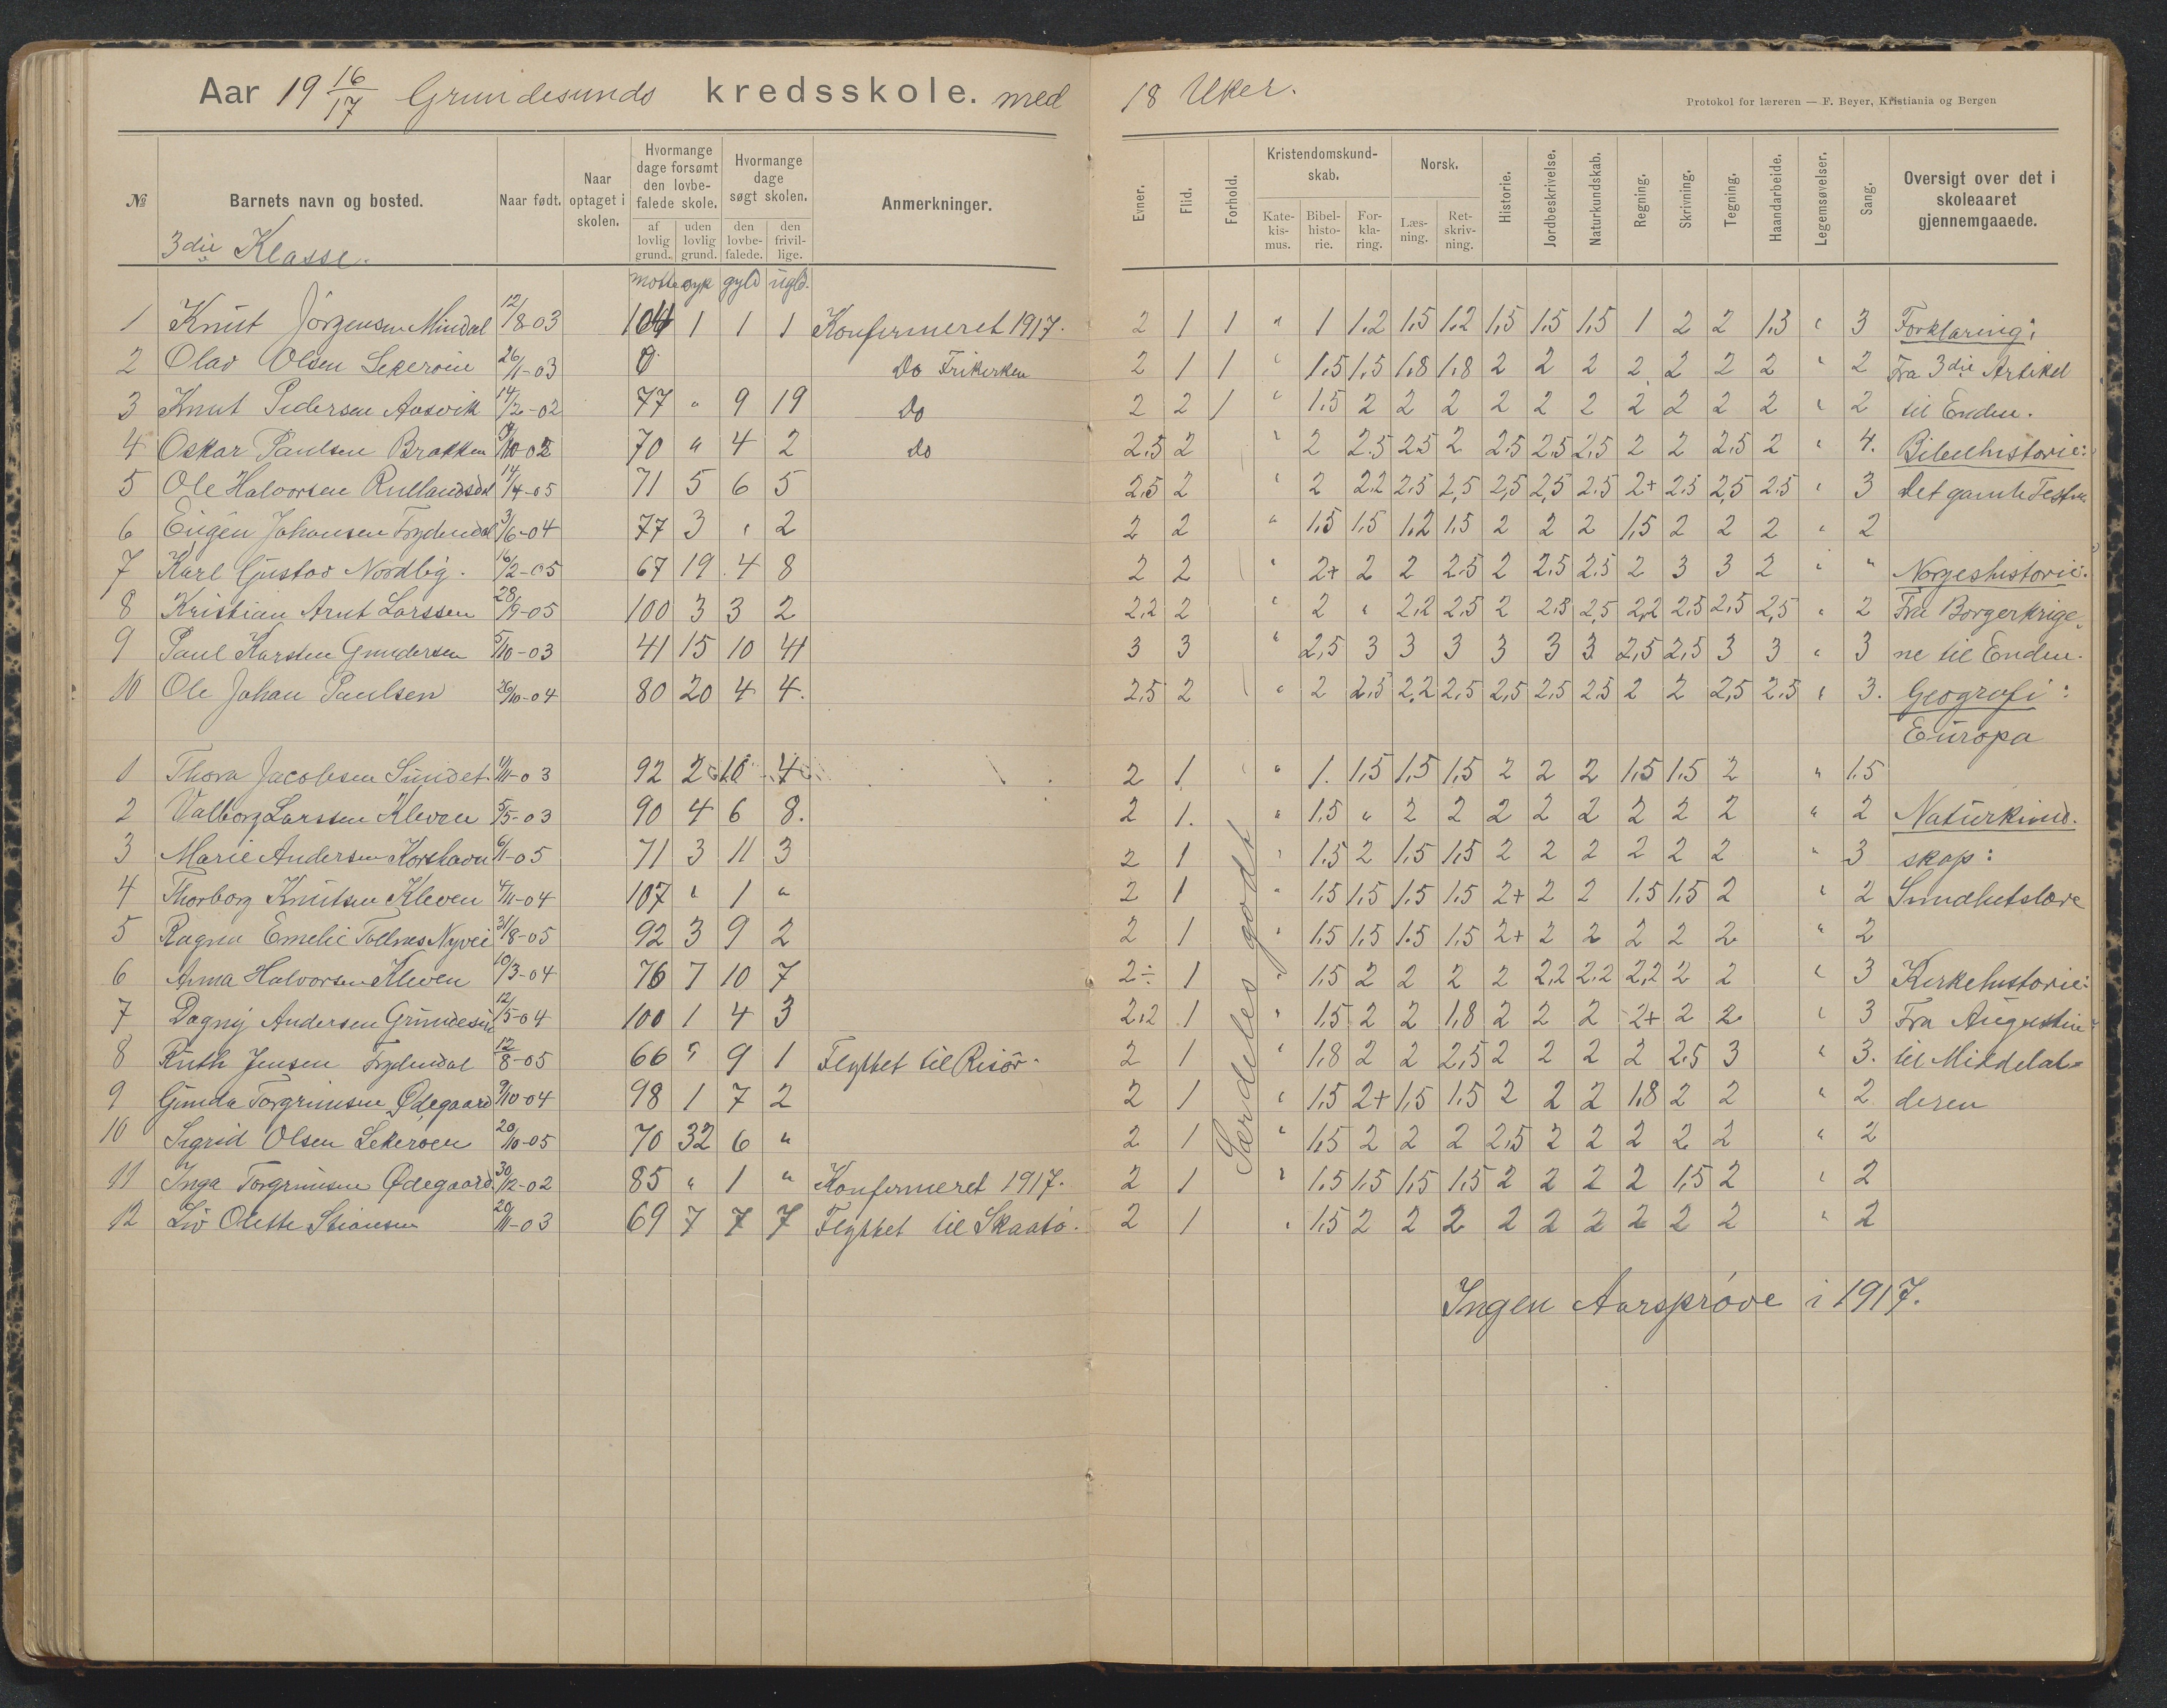 Aar 19 16/17 Grundesunds kredsskole. med 18 Uker.
Protokol for læreren — F. Beyer, Kristiania og Bergen
№ Barnets navn og bosted. Naar født. Naar optaget i skolen. Hvormange dage forsømt den lovbefalede skole. af lovlig grund. uden lovlig grund. Hvormange dage søgt skolen. den lovbefalede. den frivillige. Anmerkninger. Evner. Flid. Forhold. Kristendomskundskab. Katekismus. Bibelhistorie. Forklaring. Norsk. Læsning. Retskrivning. Historie. Jordbeskrivelse. Naturkundskab. Regning. Skrivning. Tegning. Haandarbeide. Legemsøvelser. Sang. Oversigt over det i skoleaaret gjennemgaaede.
3die Klasse.
møtte syk gyld ugld.
1 Knut Jörgensen Mindal 12/8-03 104 1 1 1 Konfirmeret 1917. 2 1 1 " 1 1.2 1.5 1.2 1.5 1.5 1.5 1 2 2 1.3 " 3 Forklaring:
2 Olav Olsen Lekeröen 26/11-03 0 Do Frikirken 2 1 1 " 1.5 1.5 1.8 1.8 2 2 2 2 2 2 2 " 2 Fra 3die Artikel
3 Knut Pedersen Aasvik 14/2-02 77 " 9 19 Do 2 2 1 " 1.5 2 2 2 2 2 2 2 2 2 2 " 2 til Enden.
4 Oskar Paulsen Brakken 70 " 4 2 Do 2.5 2 " 2 2.5 2.5 2 2.5 2.5 2.5 2 2 2.5 2 " 4. Bibelhistorie:
5 Ole Halvorsen Rullandsdal 14/4-05 71 5 6 5 2.5 2 " 2 2.2 2.5 2.5 2.5 2.5 2.5 2+ 2.5 2.5 2.5 " 3 Det gamle Testm.
6 Eugen Johansen Frydendal 3/6-04 77 3 " 2 2 2 " 1.5 1.5 1.2 1.5 2 2 2 1.5 2 2 2 " 2
7 Karl Gustav Nordbig. 16/2-05 67 19 4 8 2 2 " 2+ 2 2 2.5 2 2.5 2.5 2 3 3 2 " " Norgeshistorie:
8 Kristian Arnt Larssen 28/9-05 100 3 3 2 2.2 2 " 2 " 2.2 2.5 2 2.5 2.5 2.2 2.5 2.5 2.5 " 2 Fra Borgerkrige-
9 Paul Karsten Gundersen 5/10-03 41 15 10 41 3 3 " 2.5 3 3 3 3 3 3 2.5 2.5 3 3 " 3 ne til Enden.
10 Ole Johan Paulsen 26/10-04 80 20 4 4. 2.5 2 " 2 2.5 2.2 2.5 2.5 2.5 2.5 2 2 2.5 2.5 " 3. Geografi:
Europa
1 Thora Jacobsen Sundet 92 2 10 4 2 1 " 1. 1.5 1.5 1.5 2 2 2 1.5 1.5 2 " 1.5
2 Valborg Larssen Kleven 5/5-03 90 4 6 8. 2 1. " 1.5 " 2 2 2 2 2 2 2 2 " 2 Naturkund-
3 Marie Andersen Korshavn 6/1-05 71 3 11 3 2 1 " 1.5 2 1.5 1.5 2 2 2 2 2 2 " 3 skap:
4 Thorborg Knutsen Kleven 4/11-04 107 " 1 " 2 1 " 1.5 1.5 1.5 1.5 2+ 2 2 1.5 1.5 2 " 2 Sundhetslære
5 Ragna Emelie Tollnes Nyvei 31/8-05 92 3 9 2 2 1 " 1.5 1.5 1.5 1.5 2+ 2 2 2 2 2 " 2
6 Anna Halvorsen Kleven 10/3-04 76 7 10 7 2÷ 1 " 1.5 2 2 2 2 2.2 2.2 2.2 2 2 " 3 Kirkehistorie:
7 Dagny Andersen Grundesund 12/5-04 100 1 4 3 2.2 1 " 1.5 2 2 1.8 2 2 2 2+ 2 2 " 3 Fra Augustin
8 Ruth Jensen Frydendal 12/8-05 66 " 9 1 Flyttet til Risör. 2 1 " 1.8 2 2 2.5 2 2 2 2 2.5 3 " 3. til Middelal-
9 Gunda Torgrimsen Ødegaard 9/10-04 98 1 7 2 2 1 " 1.5 2+ 1.5 1.5 2 2 2 1.8 2 2 " 2 deren
10 Sigrid Olsen Lekeröen 20/10-05 70 32 6 " 2 1 " 1.5 2 2 2 2.5 2 2 2 2 2 " 2
11 Inga Torgrimsen Ødegaard 30/12-02 85 " 1 " Konfirmeret 1917. 2 1 " 1.5 1.5 1.5 1.5 2 2 2 2 1.5 2 " 2
12 Liv Olette Stiansen 20/11-03 69 7 7 7 Flyttet til Skaatö. 2 1 " 1.5 2 2 2 2 2 2 2 2 2 " 2
Særdeles godt
Ingen Aarspröve i 1917.